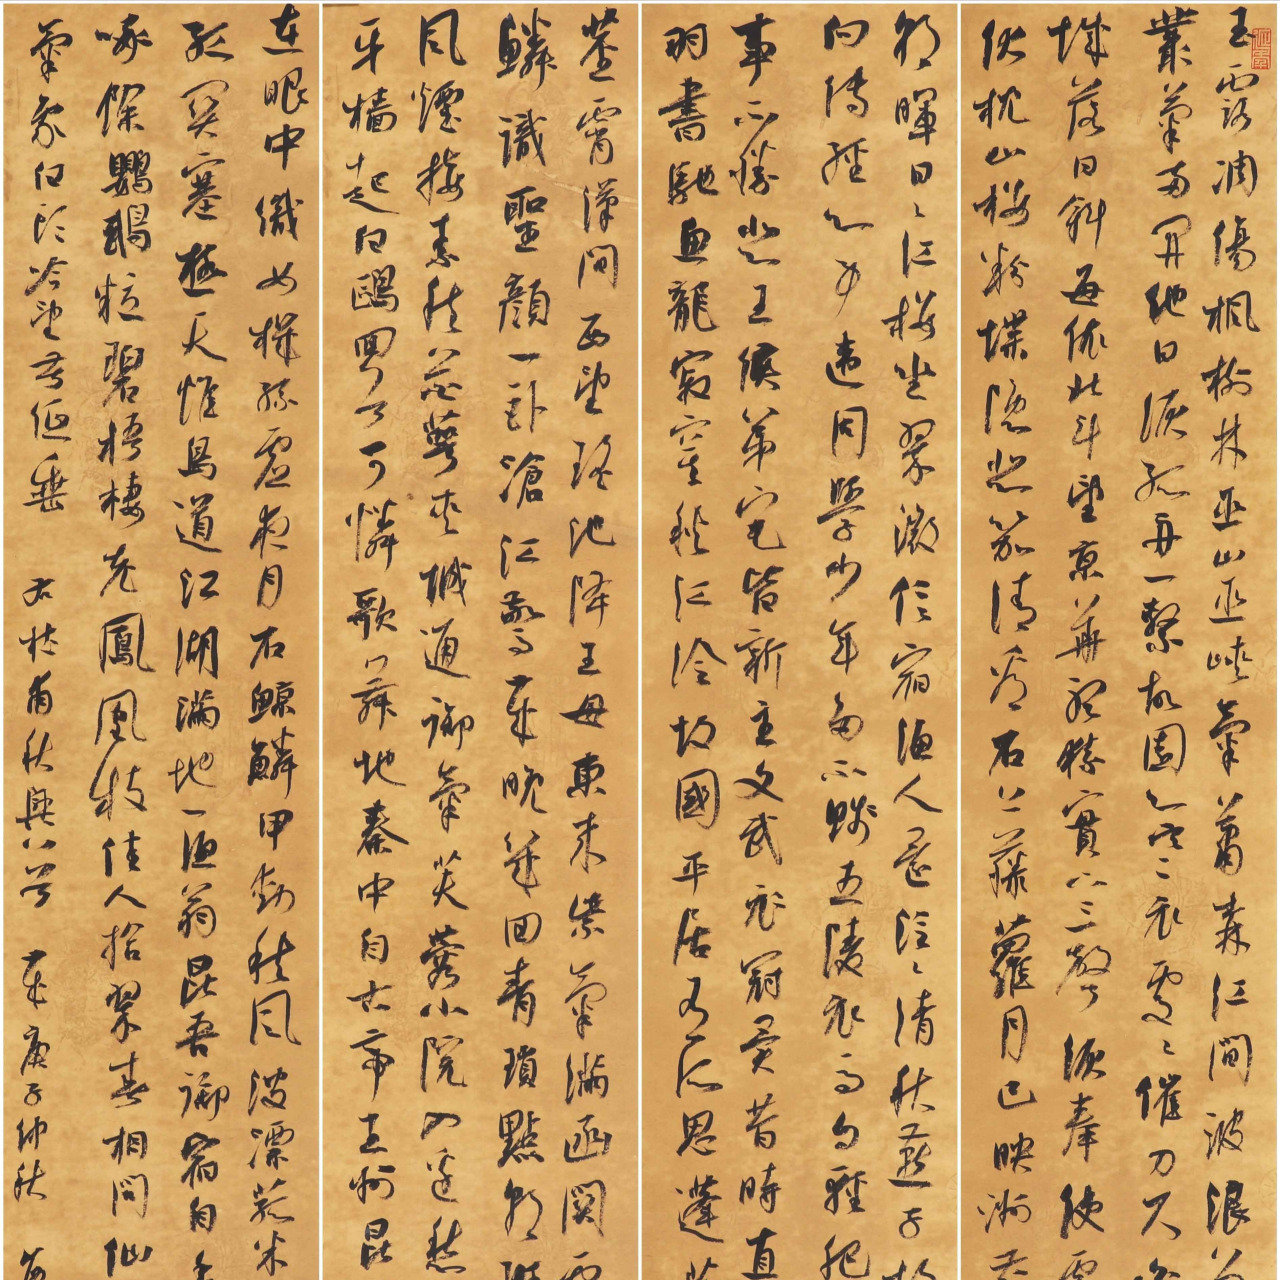 玉露凋傷楓樹林巫山巫峽氣蕭森江間波浪
叢菊兩開他日淚孤舟一繫故園心寒衣處〻催刀尺
城落日斜每依北斗望京華聽猿實下三聲淚奉使
伏枕山樓粉堞隱悲笳請看石上藤蘿月已映洲
朝暉日〻江樓坐翠微信宿漁人還泛〻清秋燕子故
向傳經心事違同學少年多不賤五陵衣馬自輕肥
事不勝悲王侯第宅皆新主文武衣冠異昔時直
羽書馳魚龍寂寞秋江冷故國平居有所思蓬
莖霄漢間西望瑤池降王母東來紫氣滿函關雲
鱗識聖顏一臥滄江驚歲晚幾回青瑣點朝班
風煙接素秋花萼夾城通御氣芙蓉小院入邊愁
牙檣起白鷗回首可憐歌舞地秦中自古帝王州昆
在眼中織女機絲虛夜月石鯨鱗甲動秋風波漂菰米
孤關塞極天惟鳥道江湖滿地一漁翁昆吾御宿自
啄餘鸚鵡粒碧梧棲老鳳凰枝佳人拾翠春相問仙
氣象白頭吟望苦低垂 右杜甫秋興八首 歲庚子仲秋